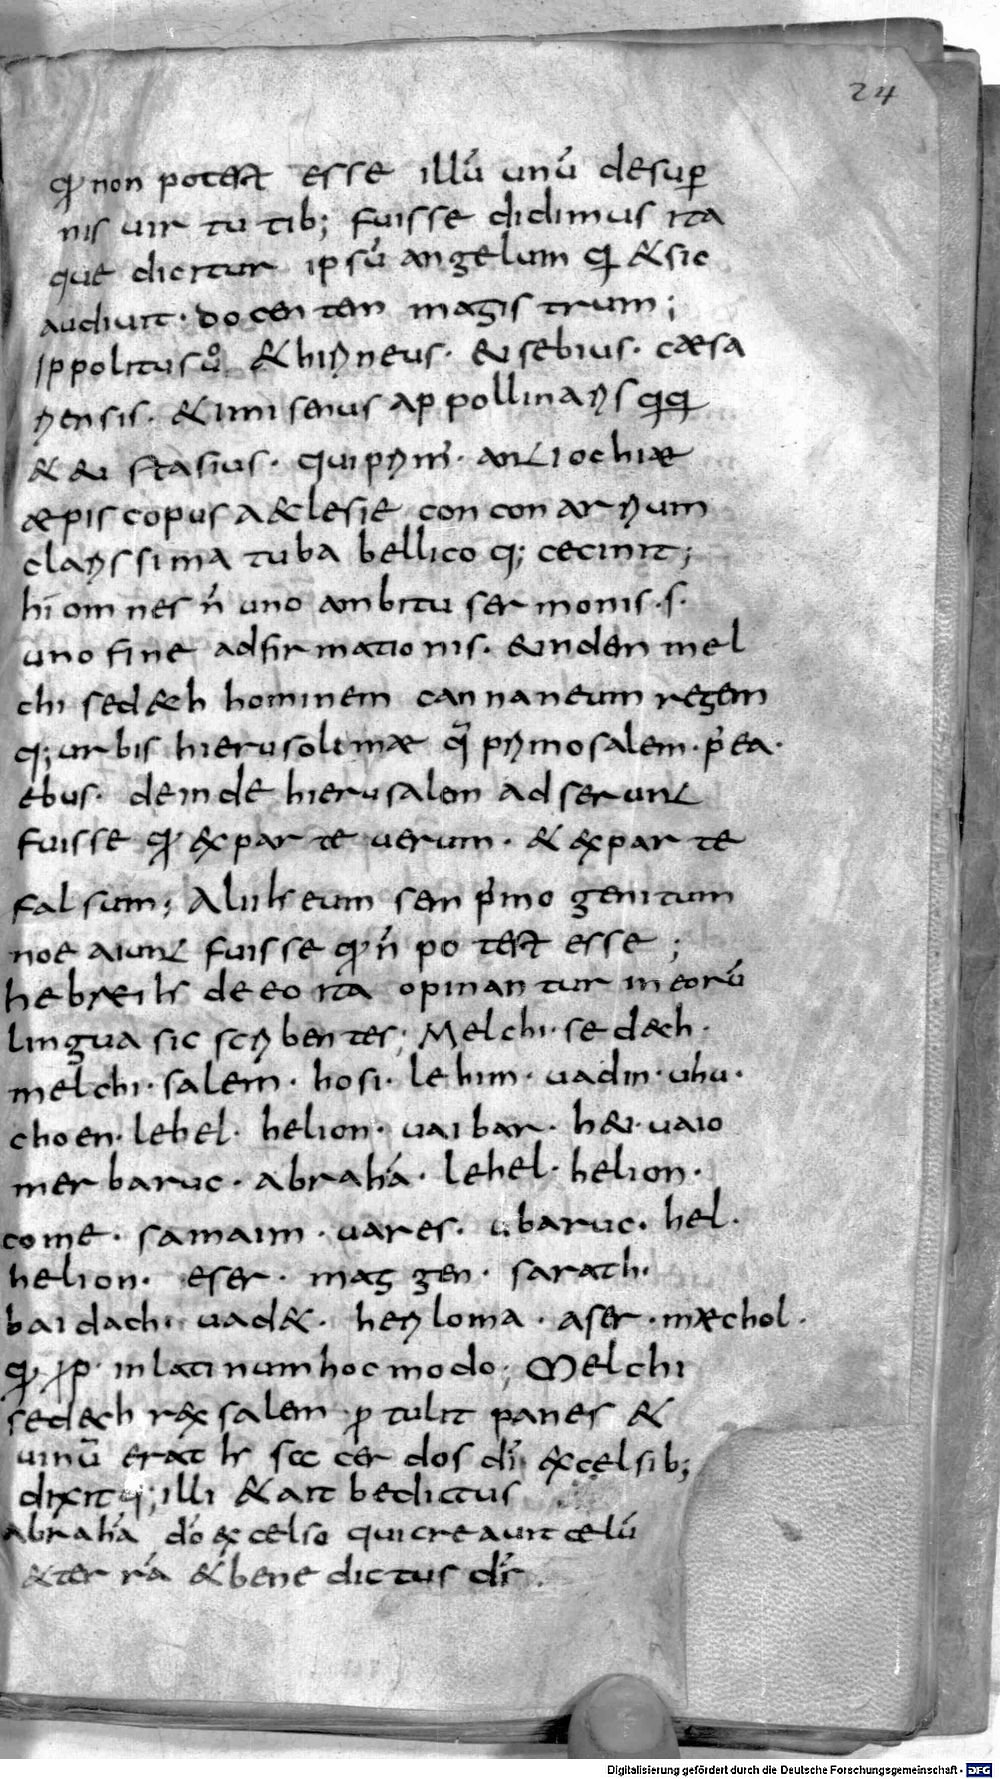 24
qđ non potest esse illū unū desup
nis uirtutib; fuisse didimus ita
que dicitur ipsū angelum qi & sic
audiuit · docentem magistrum ;
Ippolitus ů & hirineus · eusebius · cæsa
riensis · & imisenus appollinaris qq
& eu stasius · qui prim · antiochiæ
æpiscopus aeclesie con con arrium
clarissima tuba bellicoq; cecinit ;
hi omnes ń uno ambitu sermonis · s ·
uno fine adfirmationis · euinden mel
chisedech hominem cannaneum regem
q; urbis hierusolimæ q̄ primo salem · p ea ·
ebus · deinde hierusalem adserunt
fuisse qđ ex parte uerum · & ex parte
falsum ; Alii hr eum sem primo genitum
noe aiunt fuisse qđ ń potest esse ;
hebræi hr de eo ita opinantur in eorū
lingua sic scribentes ; Melchi · sedech ·
melchi · salem · hosi · lehim · uadin · uhu ·
choen · lehel · helion · uaibar · heu · uaio
mer baruc · abrahā · lehel · helion ·
come · samaim · uares · ubaruc · hel ·
helion · eser · maggen · sarath ·
baidach · uad& · heriloma · aser · mæchol ·
qđ in latinum hoc modo ; Melchi
sedech rex salem protulit panes &
uinū erat hr sacerdos di excelsi b;
dixitq; illi & ait bedictus
abrahā dō excelso qui creauit celū
& terrā & benedictus ds
Digitalisierung gefördert durch die Deutsche Forschungsgemeinschaft - DFG